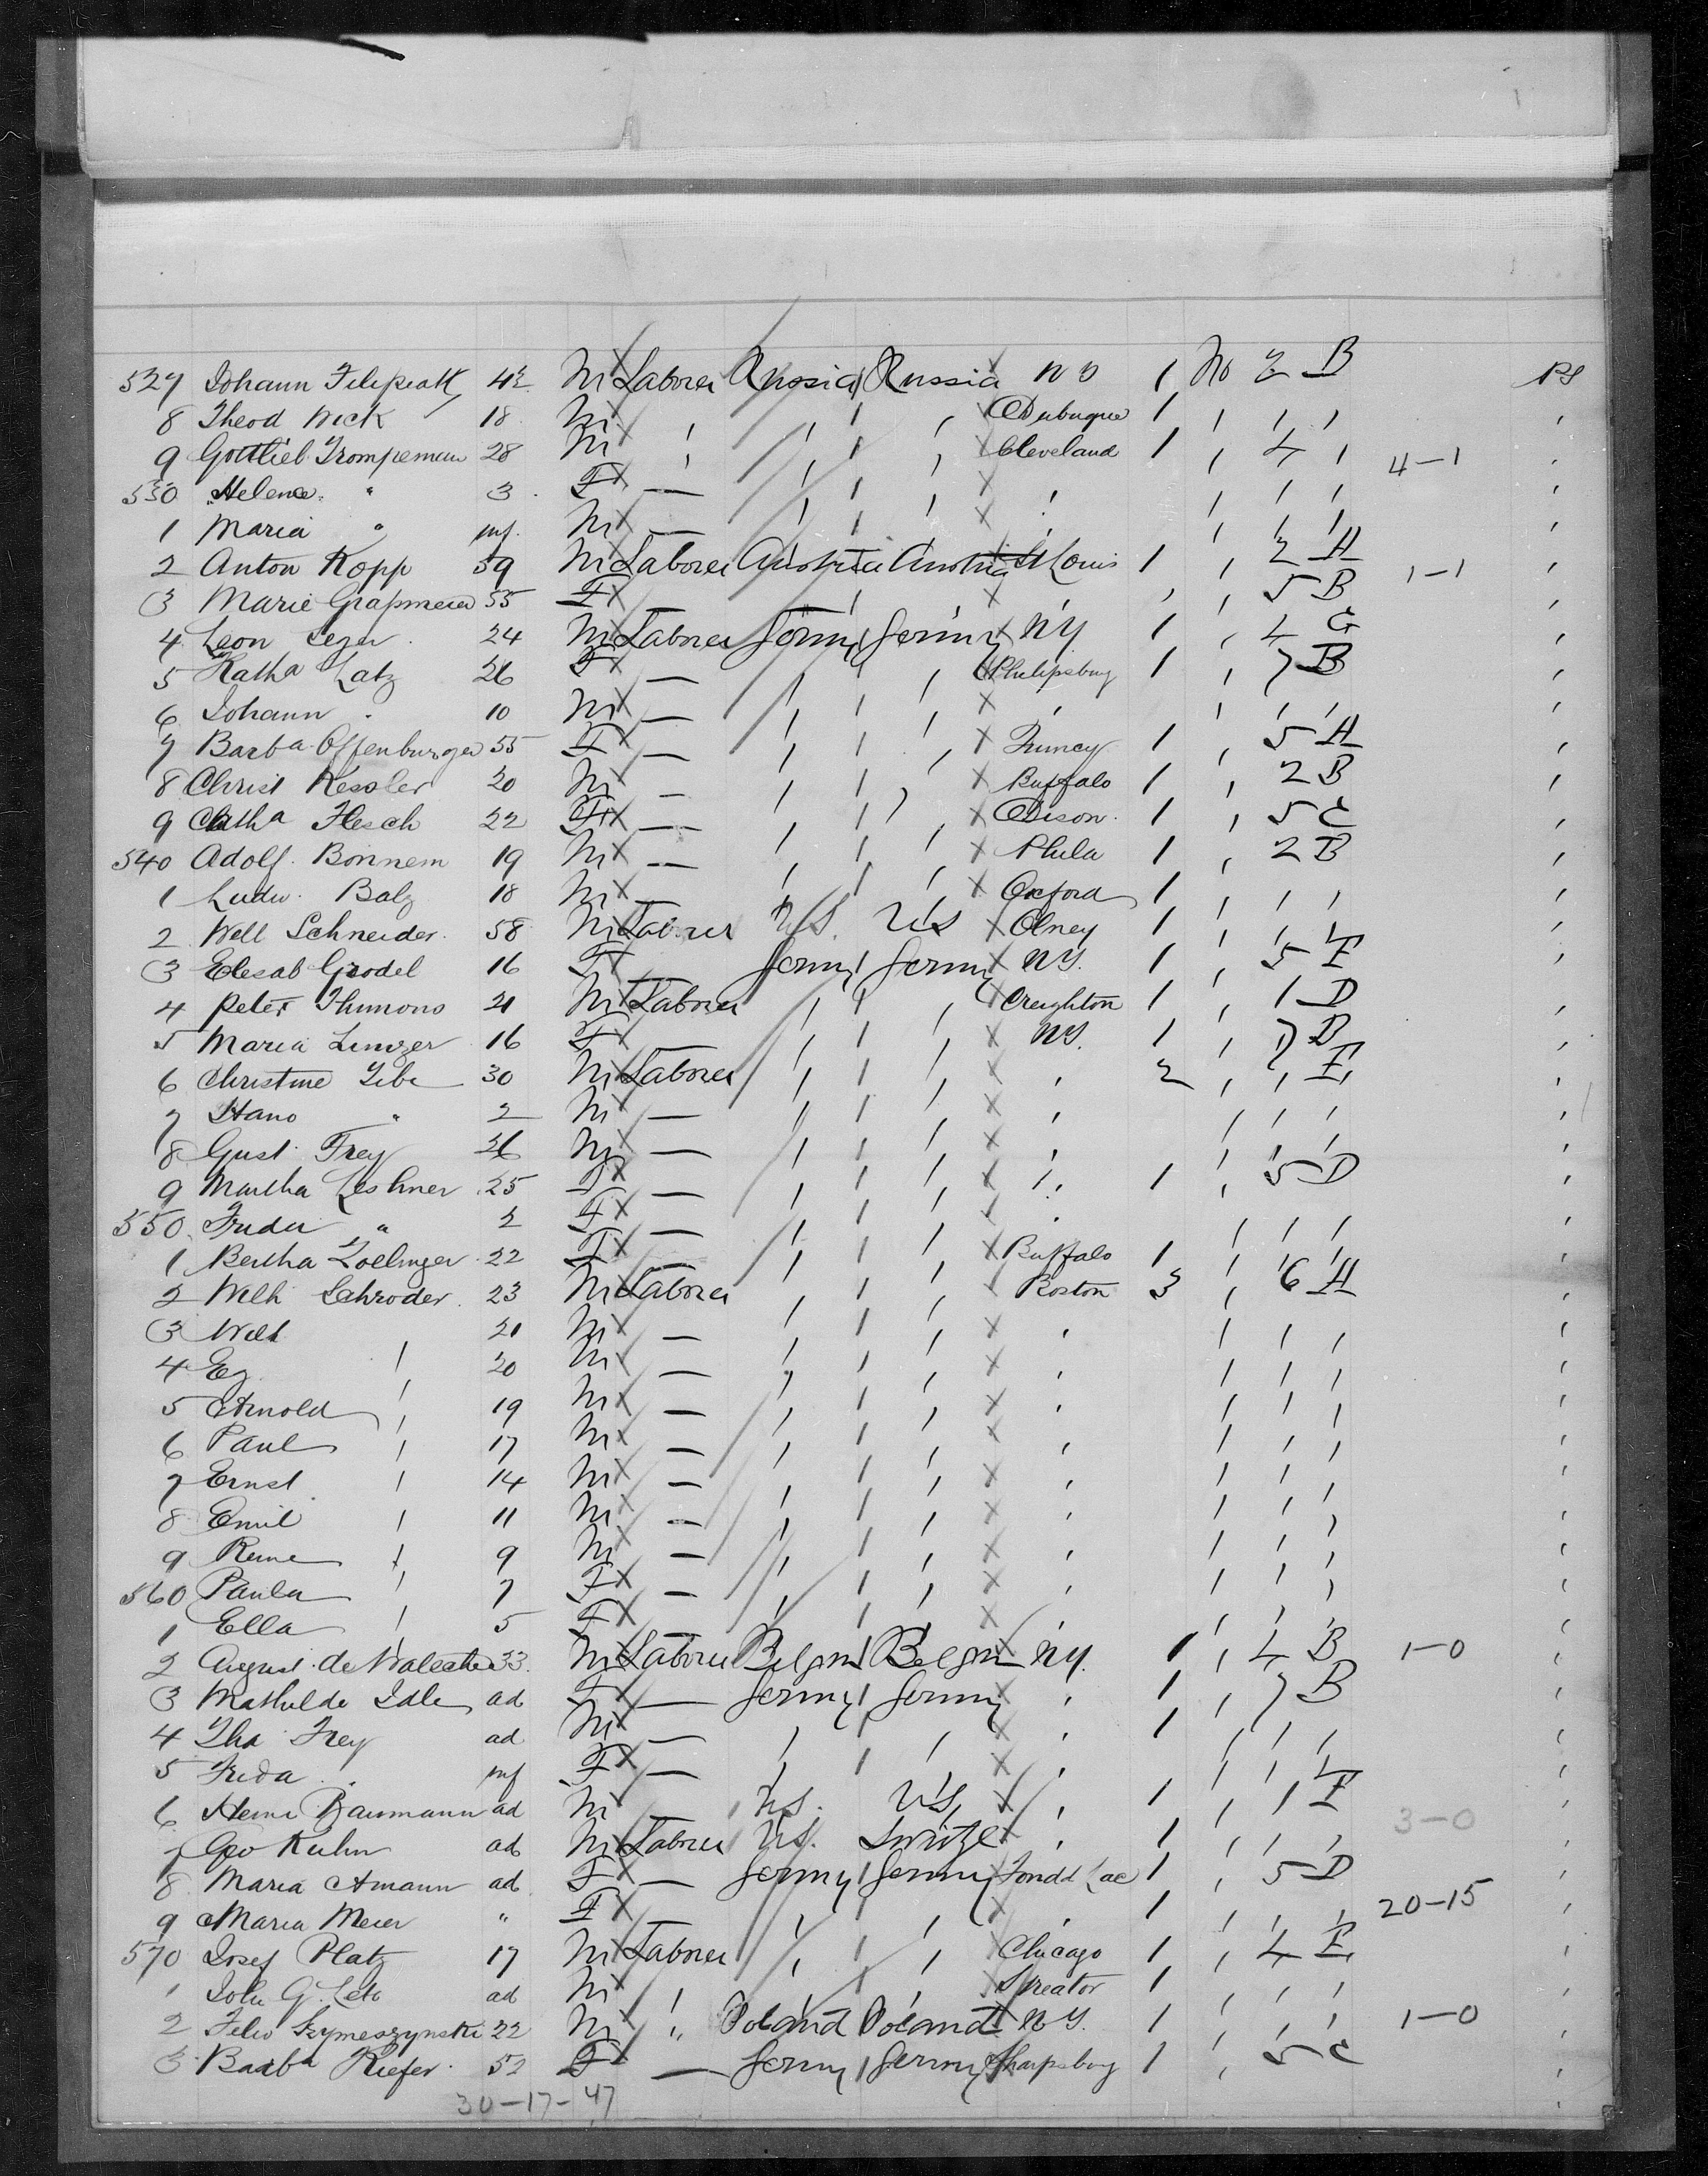 527 Johann 42 M Laborer Russia Russia NY 1 No 2 B PS
8 Theod Wick 18 M " " " Dubuque 1 " " "
9 Gottlieb Trompeman 28 M " " " Cleveland 1 " 4 " 4-1
530 Helene " 3 F — " " " " " "
1 Maria " inf. M — " " " " " "
2 Anton Kopp 59 M Laborer Austria Austria St Louis 1 " 2 H 1-1
3 Marie Grapmeier 55 F — " " " " 5 B
4 Leon 24 M Laborer Germy Germy NY 1 " 4 G
5 Katha Latz 26 F — " " Philipsburg 1 " 7 B
6 Johann " 10 M — " " " " " "
7 Barba Offenburger 55 F — " " 1 " 5 H
8 Christ Kessler 20 M — " " Buffalo 1 " 2 B
9 Catha Flesch 22 F — " " Edison 1 " 5 C
540 Adolf Bonnem 19 M — " " Phila 1 " 2 B
1 Ludw. Balz 18 M — " " Oxford 1 " " "
2 Well Schneider 58 M Laborer US US Olney 1 " " "
3 Elesab Grodel 16 F Germy Germy NY. 1 " 5 F
4 Peter Thumons 21 M Laborer " " Creighton 1 " 1 D
5 Maria 16 F " " NY. 1 " 7 B
6 Christine 30 M Laborer " " " 2 " " E
7 Hans " 2 M — " " " " " "
8 Gust Frey 26 M — " " " " " "
9 Martha Leshner 25 F — " " " 1 " 5 D
550 Frieda " 2 F — " " " " " "
1 Bertha Zoellnger 22 F — " " Buffalo 1 " " "
2 Welh Schroder 23 M Laborer " " Boston 3 " 6 H
3 Welh " 21 M — " " " " " "
4 Eg " 20 M — " " " " " "
5 Arnold " 19 M — " " " " " "
6 Paul " 17 M — " " " " " "
7 Ernst " 14 M — " " " " " "
8 Emil " 11 M — " " " " " "
9 " 9 M — " " " " " "
560 Paula " 7 F — " " " " " "
1 Ella " 5 F " " " " " "
2 August de 33 M Laborer Belgm Belgm NY. 1 " 4 B 1-0
3 Mathilde Idle ad F — Germy Germy " 1 " 7 B
4 Frey ad M — " " " 1 " " "
5 Frieda " inf F — " " " " " "
6 Baumann ad M US. US " 1 " 1 F
7 Geo Kuhn ad M Laborer US. Switzl " 1 " " " 3-0
8 Maria Amann ad F — Germy Germy Fondd Lac 1 " 5 D
9 Maria Meier " F — " " " 1 " " " 20-15
570 Josef Platz 17 M Laborer " " Chicago 1 " 4 E
1 John G. ad M " " " Streator 1 " " "
2 22 M " Poland Poland NY. 1 " " " 1-0
3 Barba Kiefer 52 F — Germy Germy Sharpsburg 1 " 5 C
30-17-47